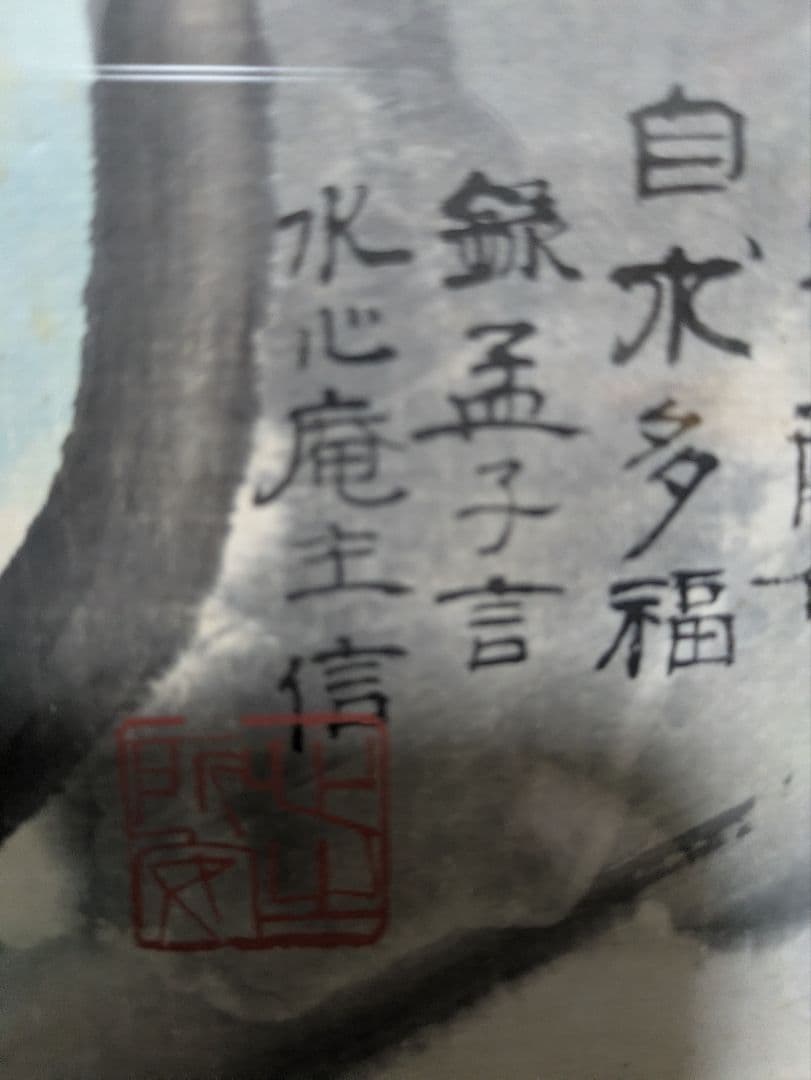 自求多福
錄孟子言
水心庵主信